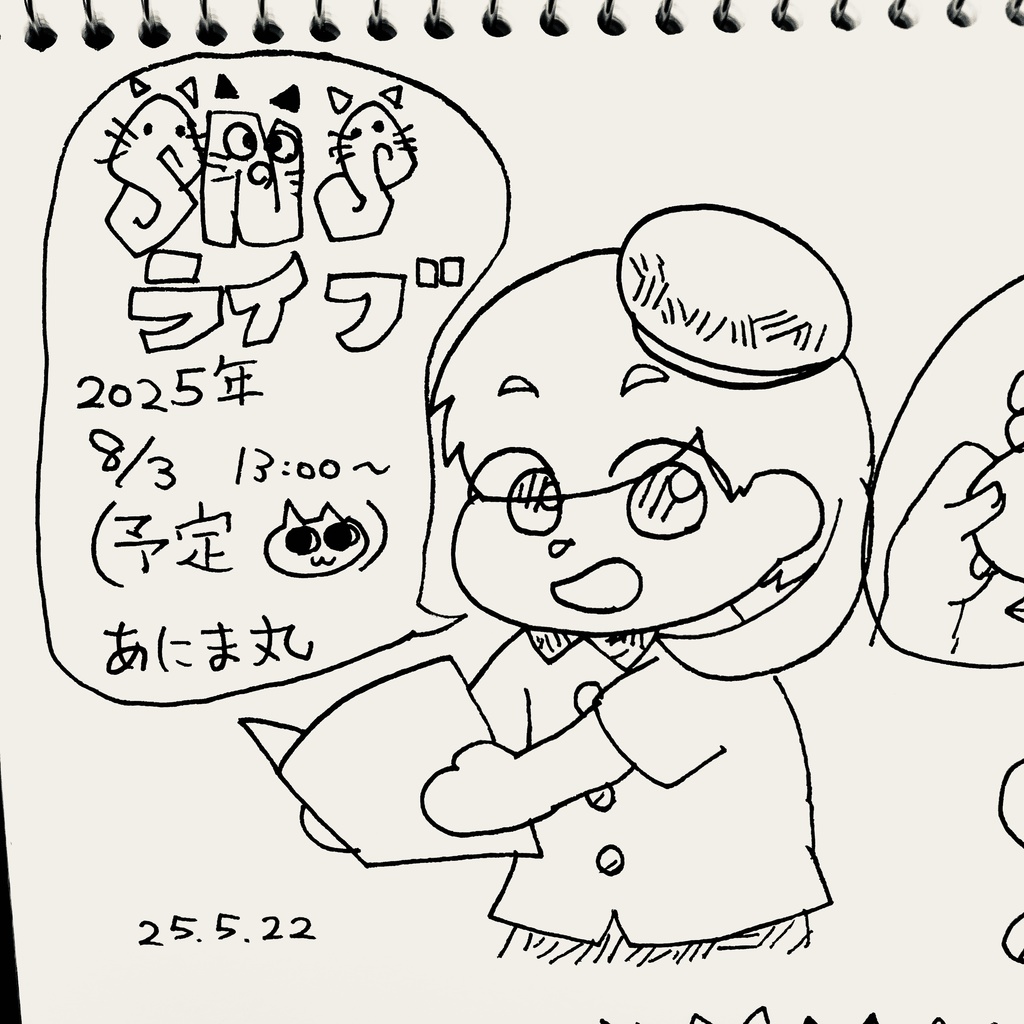 ライブ
2025年
8/3 13:00～
(予定 )
あにま丸
25.5.22